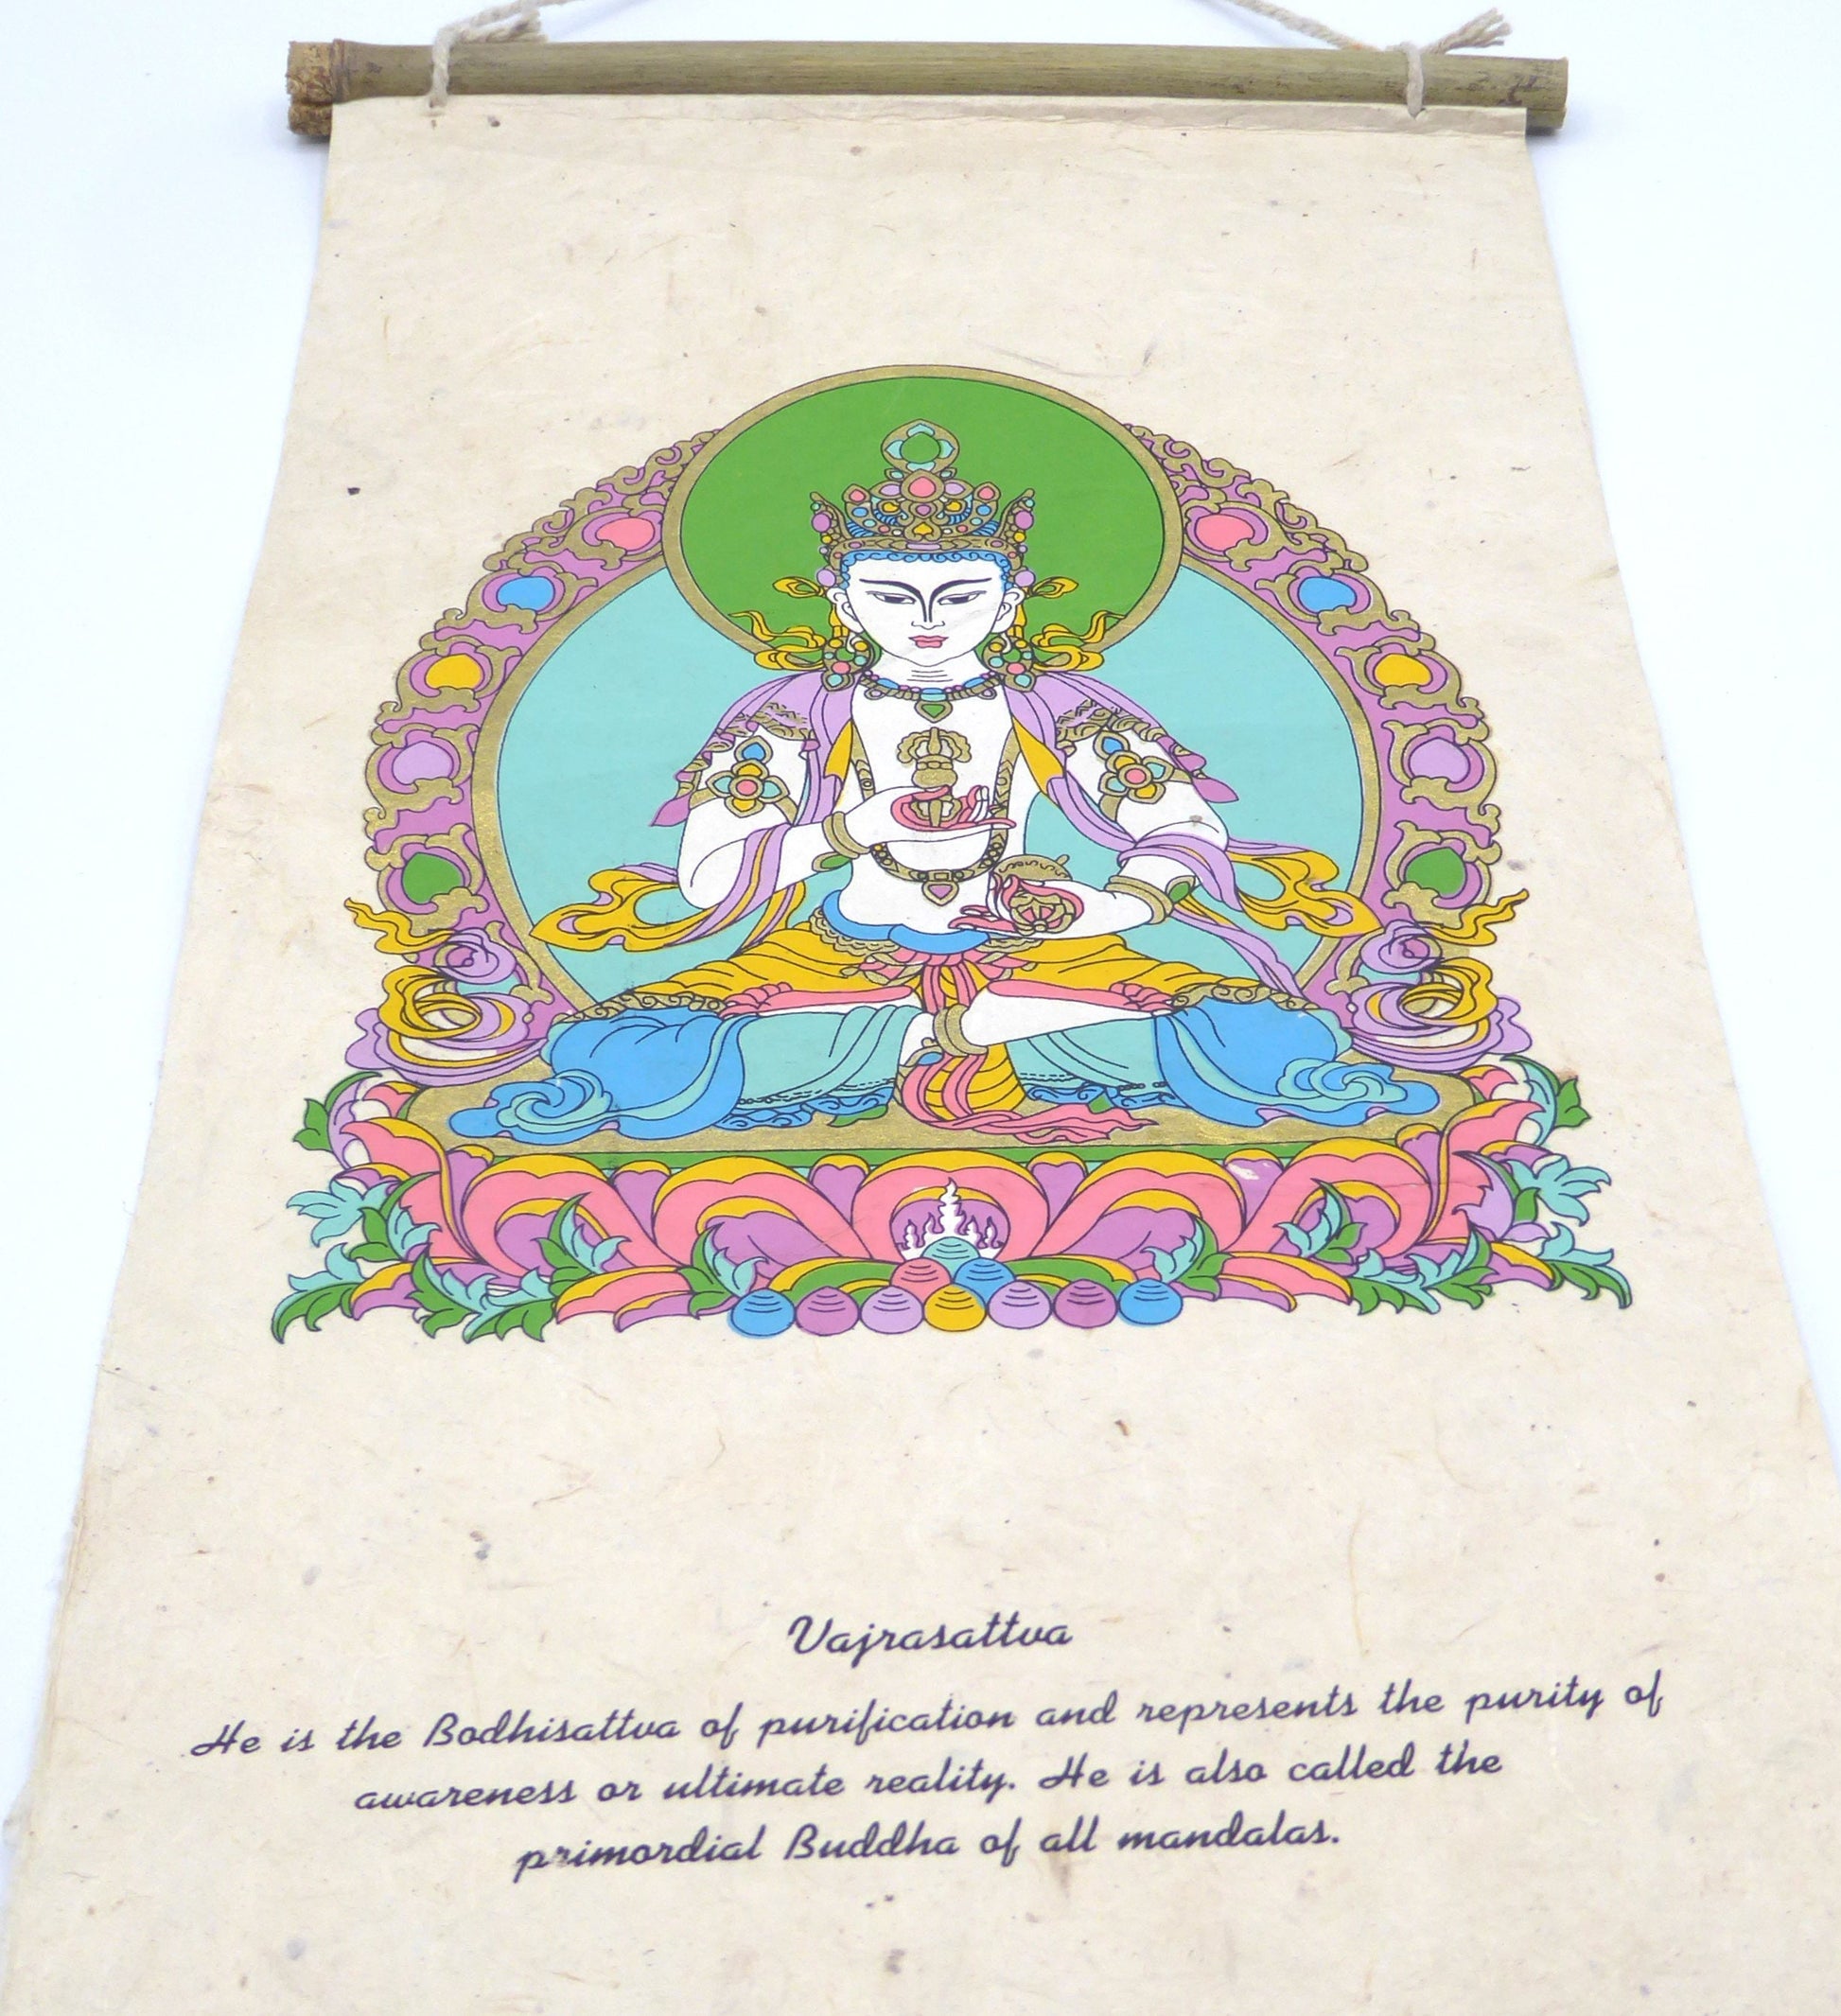 Vajrasattva
He is the Bodhisattva of purification and represents the purity of
awareness or ultimate reality. He is also called the
primordial Buddha of all mandalas.